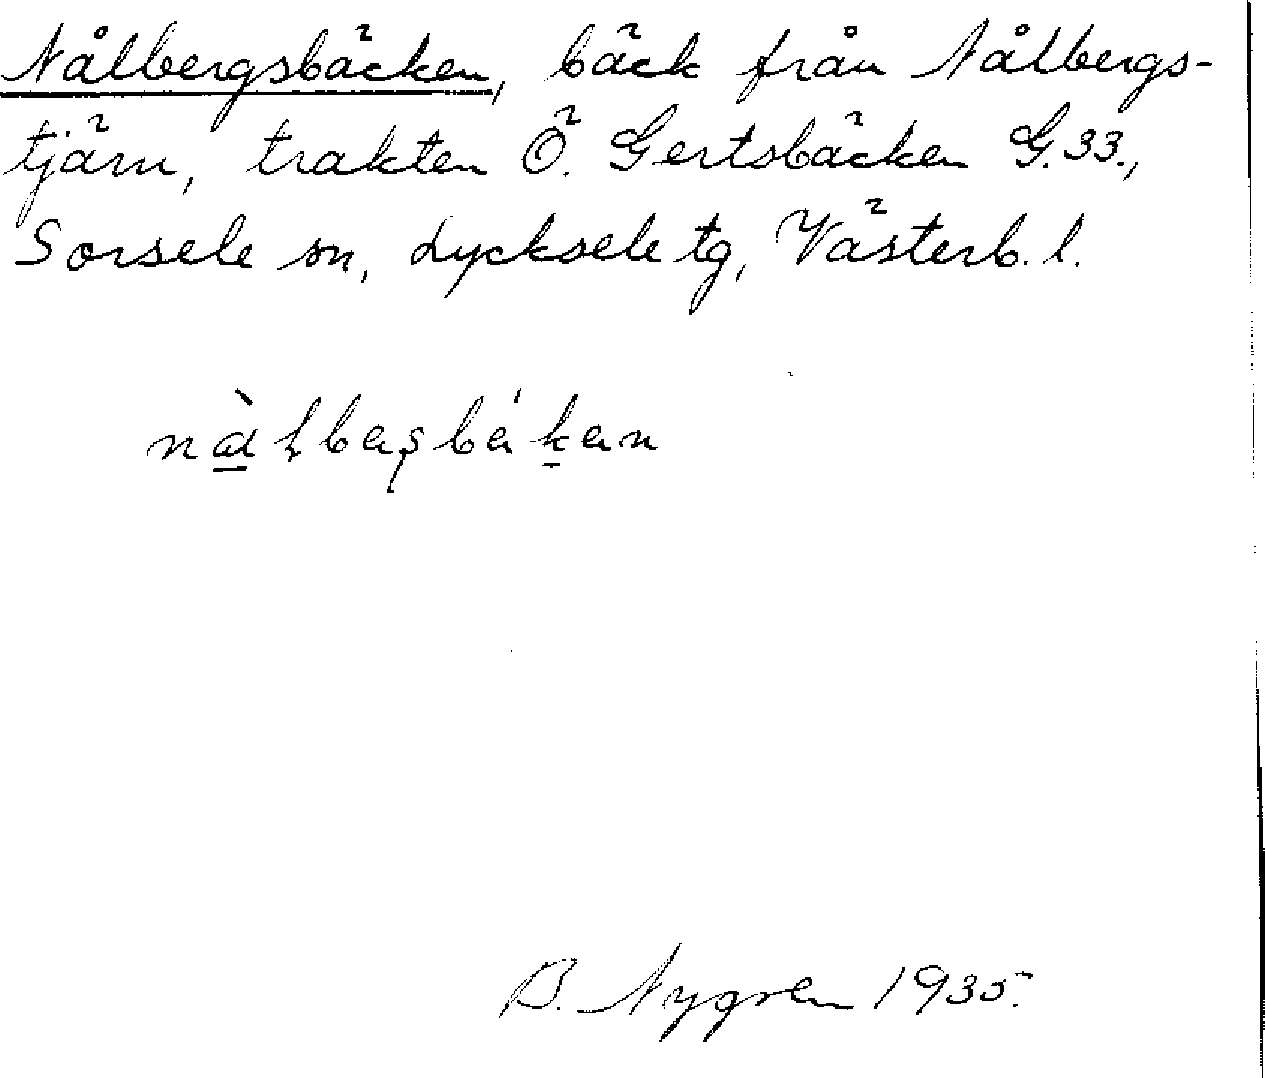 Nålbergsbäcken, bäck från Nålbergs-
tjärn, trakten Ö. Gertsbäcken G.33.,
Sorsele sn, Lycksele tg, Västerb. l.
B. Nygren 1935.